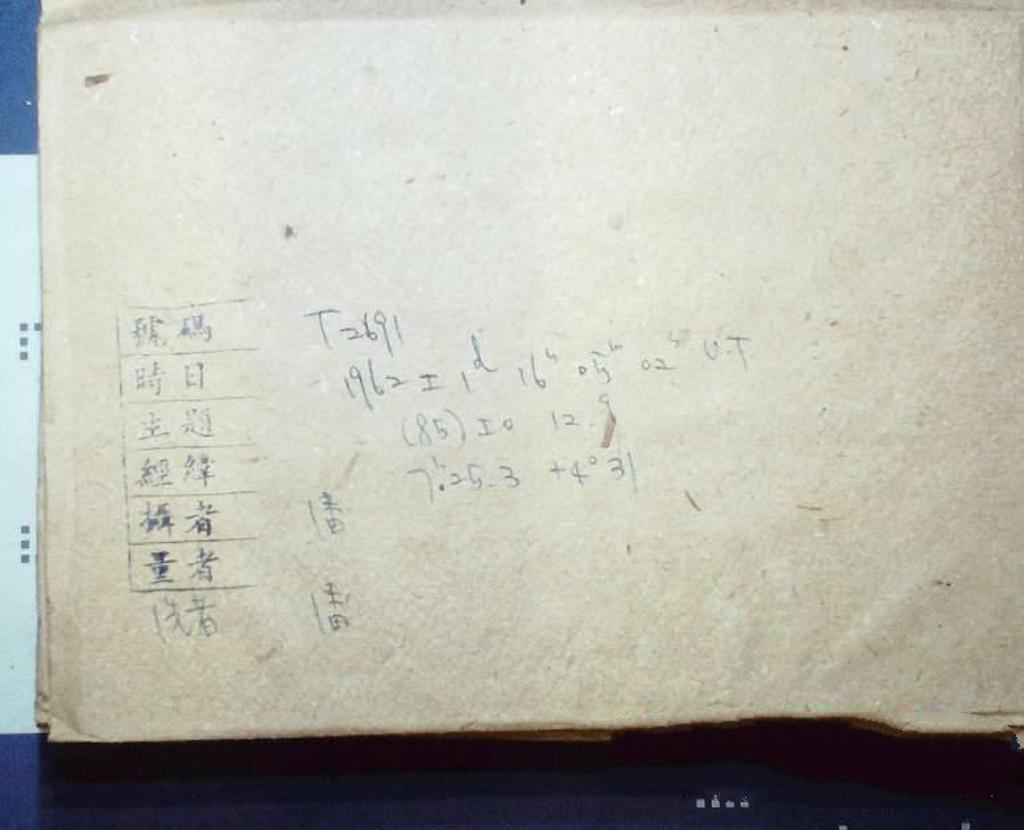 號碼 T2691
時日 1962 I 1d 16h 05m 02s U.T
主題 (85) Io 12.9
經緯 7h25.3 +4°31
攝者 潘
量者
洗者 潘